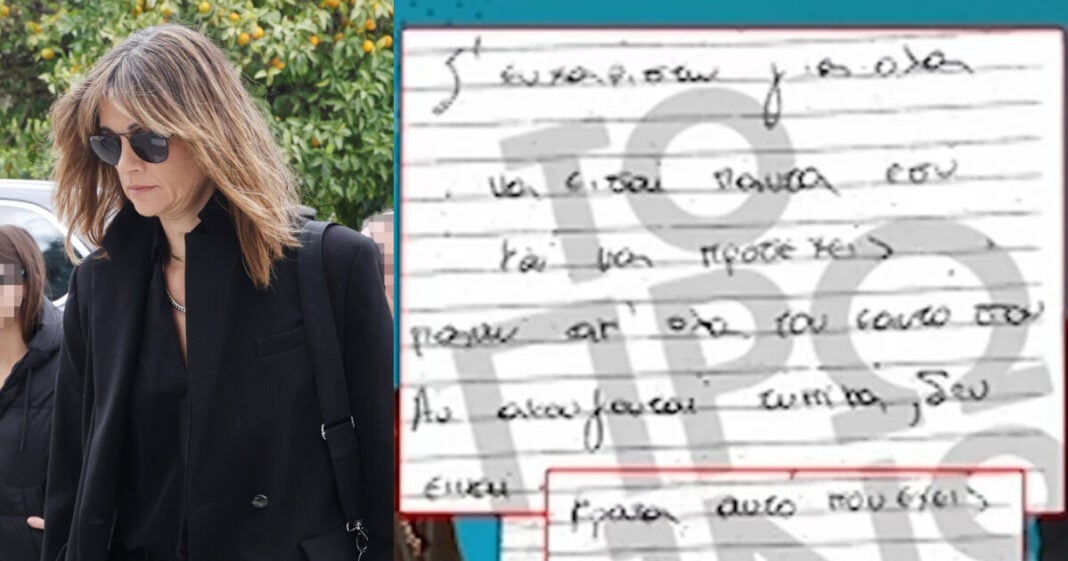 Σ' ευχαριστω για ολα
να εισαι παντα εσυ
και να προσεχεις
πανω απ' ολα τον εαυτο σου
Αν ακουγονται τυπικα, δεν
ειναι
κρατα αυτο που εχεις
ΤΟ
ΠΡΩ